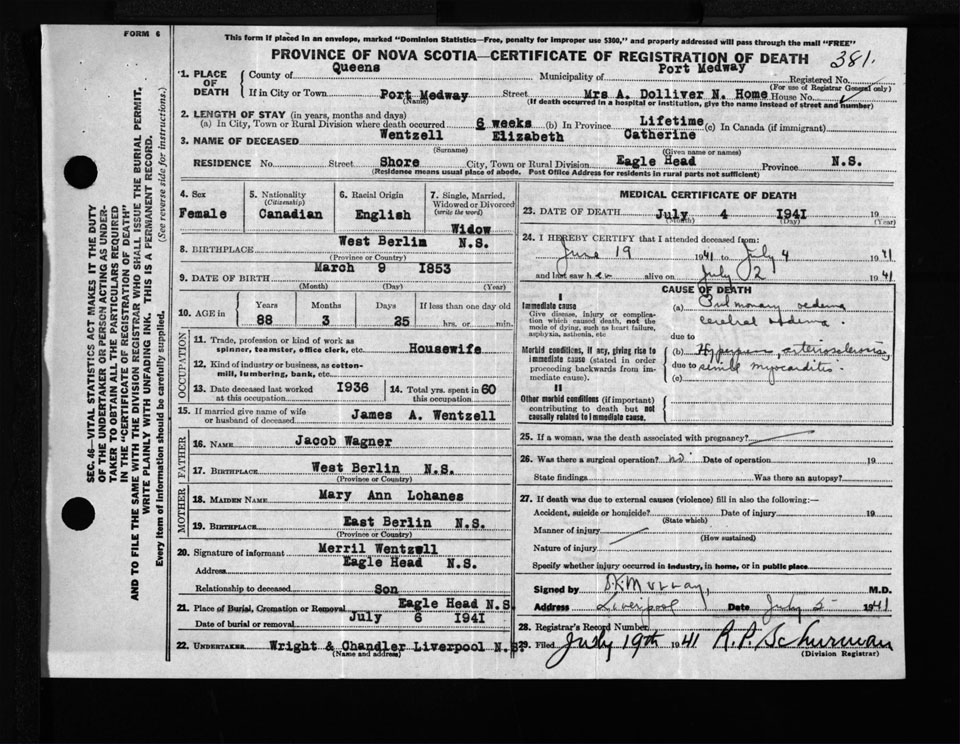 FORM 6
This form if placed in an envelope, marked "Dominion Statistics—Free, penalty for improper use $300," and properly addressed will pass through the mail "FREE"
PROVINCE OF NOVA SCOTIA—CERTIFICATE OF REGISTRATION OF DEATH 381.
SEC. 46—VITAL STATISTICS ACT MAKES IT THE DUTY
OF THE UNDERTAKER OR PERSON ACTING AS UNDER-
TAKER TO OBTAIN ALL THE PARTICULARS REQUIRED
IN THE "CERTIFICATE OF REGISTRATION OF DEATH"
AND TO FILE THE SAME WITH THE DIVISION REGISTRAR WHO SHALL ISSUE THE BURIAL PERMIT.
WRITE PLAINLY WITH UNFADING INK. THIS IS A PERMANENT RECORD.
Every item of Information should be carefully supplied. (See reverse side for instructions.)
1. PLACE OF DEATH
County of Queens Municipality of Port Medway Registered No.
(For use of Registrar General only)
If in City or Town Port Medway Street Mrs A. Dolliver N. Home House No.
(Name) (If death occurred in a hospital or institution, give the name instead of street and number)
2. LENGTH OF STAY (in years, months and days)
(a) In City, Town or Rural Division where death occurred 6 weeks (b) In Province Lifetime (c) In Canada (if immigrant)
3. NAME OF DECEASED Wentzell Elizabeth Catherine
(Surname) (Given name or names)
RESIDENCE No. Street Shore City, Town or Rural Division Eagle Head Province N.S.
(Residence means usual place of abode. Post Office Address for residents in rural parts not sufficient)
4. Sex 5. Nationality (Citizenship) 6. Racial Origin 7. Single, Married, Widowed or Divorced (write the word)
Female Canadian English Widow
8. BIRTHPLACE West Berlin N.S.
(Province or Country)
9. DATE OF BIRTH March 9 1853
(Month) (Day) (Year)
10. AGE IN Years Months Days If less than one day old
88 3 25 hrs. or min.
OCCUPATION
11. Trade, profession or kind of work as
spinner, teamster, office clerk, etc. Housewife
12. Kind of industry or business, as cotton-
mill, lumbering, bank, etc.
13. Date deceased last worked at this occupation 1936 14. Total yrs. spent in this occupation 60
15. If married give name of wife
or husband of deceased James A. Wentzell
FATHER
16. NAME Jacob Wagner
17. BIRTHPLACE West Berlin N.S.
(Province or Country)
MOTHER
18. MAIDEN NAME Mary Ann Lohanes
19. BIRTHPLACE East Berlin N.S.
(Province or Country)
20. Signature of informant Merril Wentzell
Address Eagle Head N.S.
Relationship to deceased Son
21. Place of Burial, Cremation or Removal Eagle Head N.S.
Date of burial or removal July 6 1941
22. UNDERTAKER Wright & Chandler Liverpool N.S.
(Name and address)
MEDICAL CERTIFICATE OF DEATH
23. DATE OF DEATH July 4 1941 19
(Month) (Day) (Year)
24. I HEREBY CERTIFY that I attended deceased from:
June 19 1941 to July 4 1941
and last saw her alive on July 2 1941
CAUSE OF DEATH
I
Immediate cause
Give disease, injury or complica-
tion which caused death, not the
mode of dying, such as heart failure,
asphyxia, asthenia, etc
(a) Pulmonary oedema
cerebral oedema.
due to
Morbid conditions, if any, giving rise to
immediate cause (stated in order
proceeding backwards from im-
mediate cause).
(b) arteriosclerosis,
due to senile myocarditis.
(c)
II
Other morbid conditions (if important)
contributing to death but not
causally related to immediate cause.
25. If a woman, was the death associated with pregnancy?
26. Was there a surgical operation? no. Date of operation 19
State findings Was there an autopsy?
27. If death was due to external causes (violence) fill in also the following:—
Accident, suicide or homicide? Date of injury 19
(State which)
Manner of injury
(How sustained)
Nature of injury
Specify whether injury occurred in industry, in home, or in public place
Signed by Murray, M.D.
Address Liverpool Date July 5 1941
28. Registrar's Record Number
29. Filed July 19th 1941 R.P. Schurman
(Division Registrar)